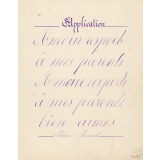 Application
Amour respect
à mes parents
Amour respect
à mes parents
bien aimés